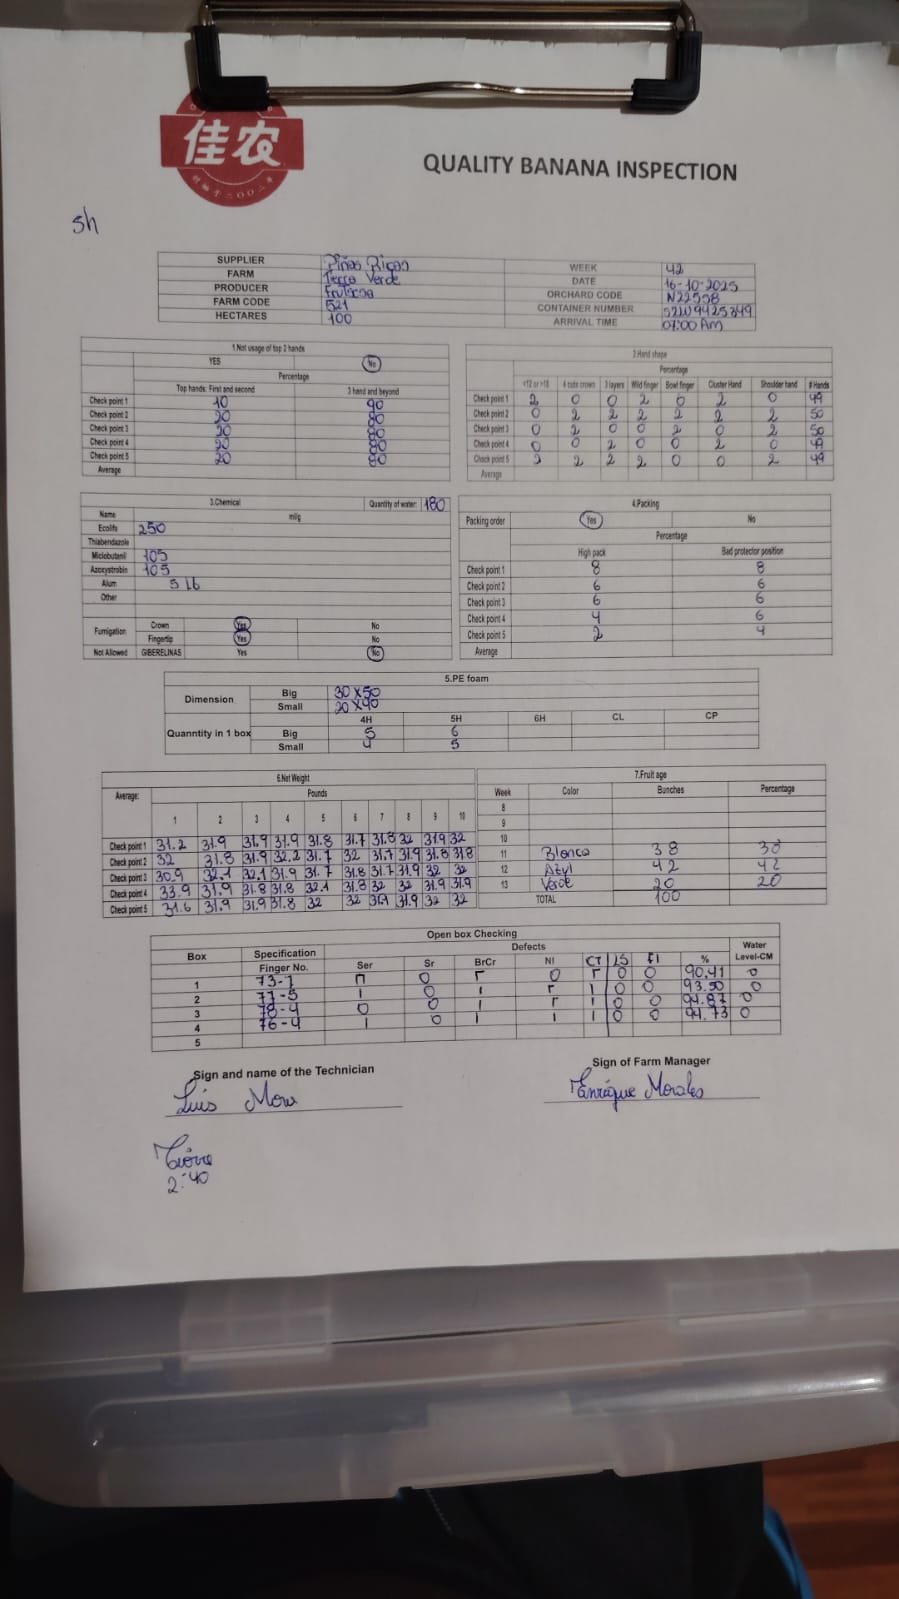 佳农
QUALITY BANANA INSPECTION
5h
SUPPLIER Piñas Ricas WEEK 42
FARM Terra Verde DATE 16-10-2025
PRODUCER ORCHARD CODE N22558
FARM CODE 521 CONTAINER NUMBER
HECTARES 100 ARRIVAL TIME 07:00 Am
1.Not usage of top 2 hands
YES No
Percentage
Top hands: First and second 3 hand and beyond
Check point 1 10 90
Check point 2 20 80
Check point 3 20 80
Check point 4 20 80
Check point 5 20 80
Average
2.Hand shape
Percentage
<12 or >18 4 cuts crown 3 layers Wild finger Bowl finger Cluster Hand Shoulder hand # Hands
Check point 1 2 0 0 2 0 2 0 49
Check point 2 0 2 2 2 2 2 2 50
Check point 3 0 2 0 0 2 0 2 50
Check point 4 0 0 2 0 0 2 0 49
Check point 5 2 2 2 2 0 0 2 49
Average
3.Chemical Quantity of water: 180
Name ml/g
Ecolife 250
Thiabendazole
Miclobutanil 105
Azoxystrobin 105
Alum 5 lb
Other
Fumigation Crown Yes No
Fingertip Yes No
Not Allowed GIBERELINAS Yes No
4.Packing
Packing order Yes No
Percentage
High pack Bad protector position
Check point 1 8 8
Check point 2 6 6
Check point 3 6 6
Check point 4 4 6
Check point 5 2 4
Average
5.PE foam
Dimension Big 30 x 50
Small 20 x 40
4H 5H 6H CL CP
Quanntity in 1 box Big 5 6
Small 4 5
6.Net Weight
Average: Pounds
1 2 3 4 5 6 7 8 9 10
Check point 1 31.2 31.9 31.9 31.9 31.8 31.7 31.8 32 31.9 32
Check point 2 32 31.8 31.9 32.2 31.7 32 31.7 31.9 31.8 31.8
Check point 3 30.9 32.1 32.1 31.9 31.7 31.8 31.7 31.9 32 32
Check point 4 33.9 31.9 31.8 31.8 32.1 31.8 32 32 31.9 31.9
Check point 5 31.6 31.9 31.9 31.8 32 32 31.9 31.9 32 32
7.Fruit age
Week Color Bunches Percentage
8
9
10
11 Blanco 38 38
12 Azul 42 42
13 Verde 20 20
TOTAL 100
Open box Checking
Box Specification Defects Water
Finger No. Ser Sr BrCr NI CT LS FI % Level-CM
1 73-7 0 0 0 0 90.41 0
2 77-5 1 0 1 1 0 0 93.50 0
3 78-4 0 0 1 1 0 0 94.87 0
4 76-4 1 0 1 1 1 0 0 94.73 0
5
Sign and name of the Technician
Luis Mora
Sign of Farm Manager
Enrique Morales
2:40